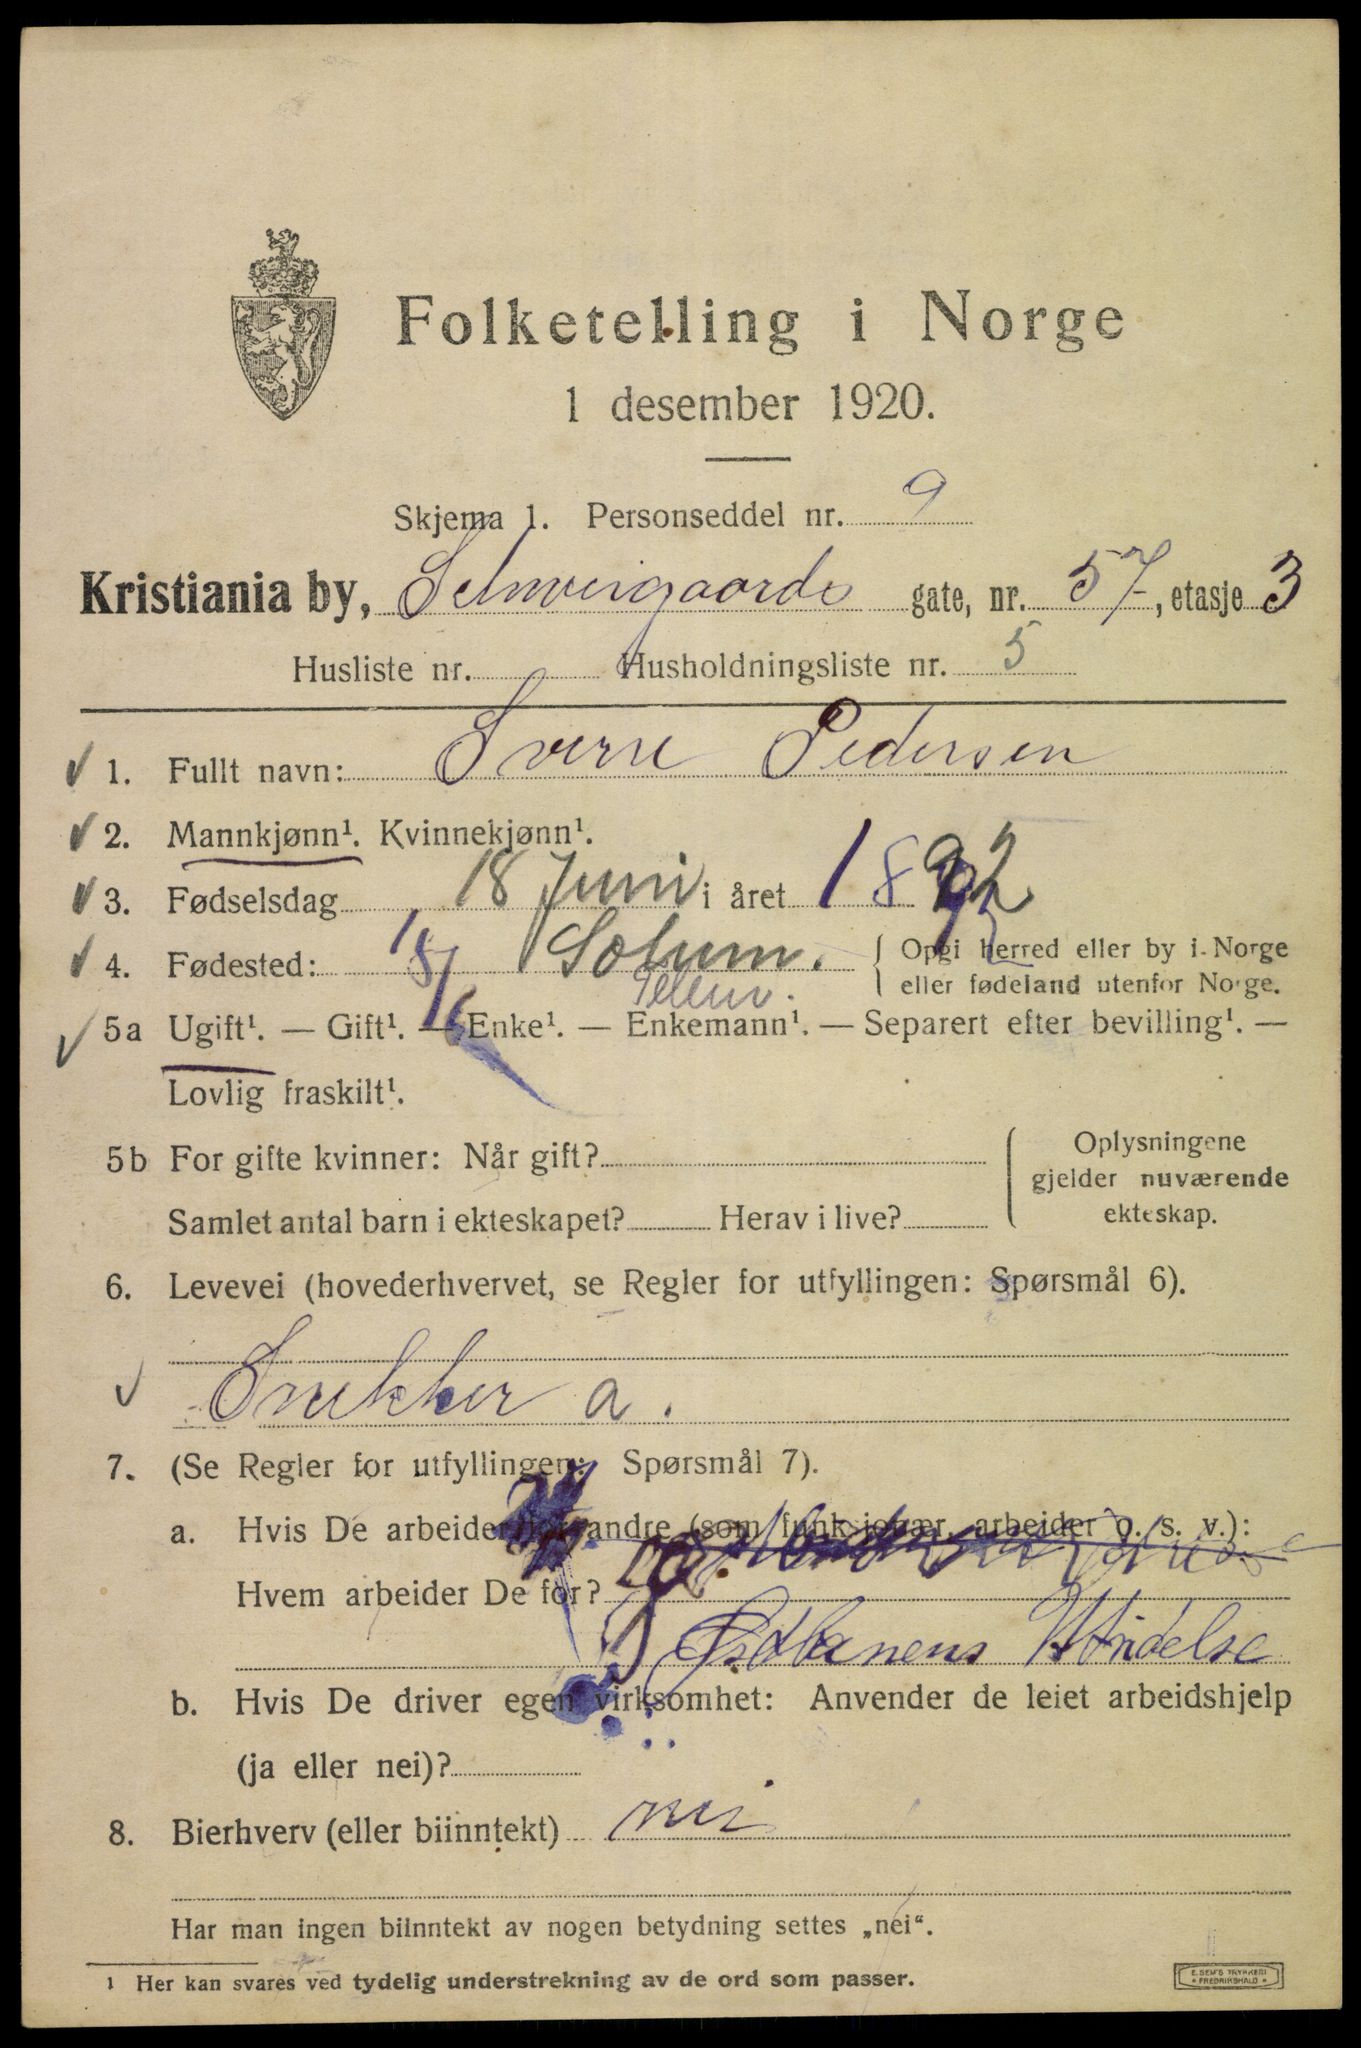 Folketelling i Norge
1 desember 1920.
Skjema 1. Personseddel nr. 9
Kristiania by, Schweigaards gate, nr. 57, etasje 3
Husliste nr. Husholdningsliste nr. 5
1. Fullt navn: Sverre Pedersen
2. Mannkjønn¹. Kvinnekjønn¹.
3. Fødselsdag 18 Juni i året 1892
4. Fødested: 18/6 Solum. { Opgi herred eller by i Norge
eller fødeland utenfor Norge.
Telem.
5a Ugift¹. — Gift¹. — Enke¹. — Enkemann¹. — Separert efter bevilling¹. —
Lovlig fraskilt¹.
5b For gifte kvinner: Når gift? { Oplysningene
gjelder nuværende
ekteskap.
Samlet antal barn i ekteskapet? Herav i live?
6. Levevei (hovederhvervet, se Regler for utfyllingen: Spørsmål 6).
Snekker a.
7. (Se Regler for utfyllingen: Spørsmål 7).
a. Hvis De arbeider for andre (som funksjonær, arbeider o. s. v.):
Hvem arbeider De for?
b. Hvis De driver egen virksomhet: Anvender de leiet arbeidshjelp
(ja eller nei)?
8. Bierhverv (eller biinntekt) nei
Har man ingen biinntekt av nogen betydning settes „nei“.
¹ Her kan svares ved tydelig understrekning av de ord som passer.
E. SEM'S TRYKKERI
FREDRIKSHALD